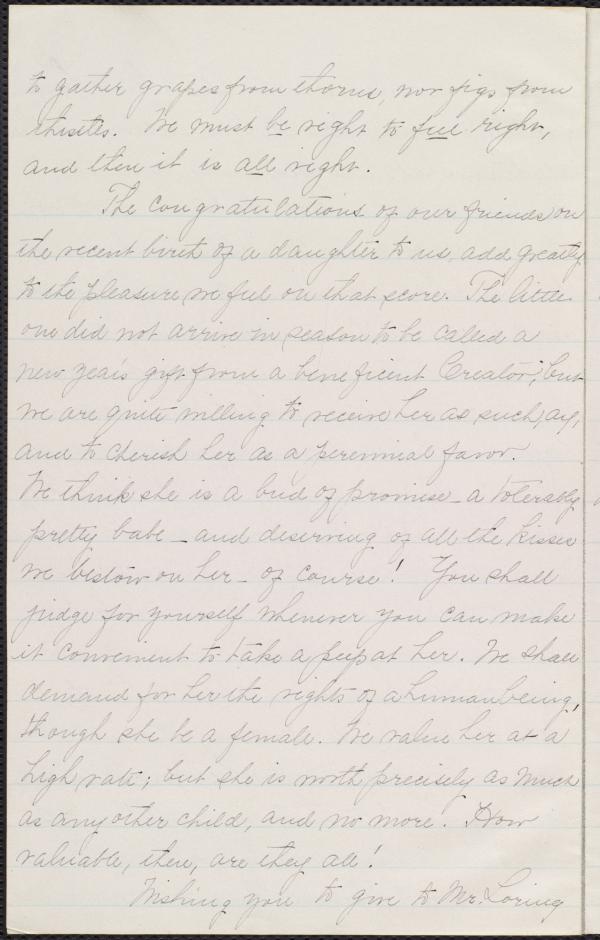 to gather grapes from thorns, nor figs from
thistles. We must be right to feel right,
and then it is all right.
The congratulations of our friends on
the recent birth of a daughter to us, add greatly
to the pleasure we feel on that score. The little
one did not arrive in season to be called a
new year's gift from a beneficent Creator; but
we are quite willing to receive her as such, ay,
and to cherish her as a perennial favor.
We think she is a bud of promise – a tolerably
pretty babe – and deserving of all the kisses
we bestow on her – of course! You shall
judge for yourself whenever you can make
it convenient to take a peep at her. We shall
demand for her the rights of a human being,
though she be a female. We value her at a
high rate; but she is worth precisely as much
as any other child, and no more. How
valuable, then, are they all!
Wishing you to give to Mr. Loring